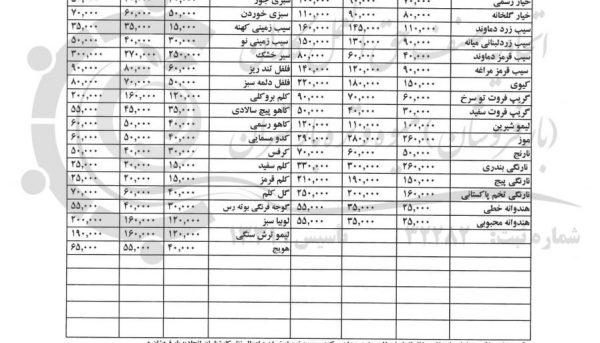 خیار رسمی سبزی جور
خیار گلخانه ۸۰,۰۰۰ ۹۰,۰۰۰ ۱۱۰,۰۰۰ سبزی خوردن ۵۰,۰۰۰ ۶۰,۰۰۰ ۷۰,۰۰۰
سیب زرد دماوند ۱۱۰,۰۰۰ سیب زمینی کهنه ۱۵,۰۰۰ ۳۵,۰۰۰
سیب زردلبنانی میانه ۹۰,۰۰۰ ۱۳۰,۰۰۰ ۱۵۰,۰۰۰ سیب زمینی نو ۳۰,۰۰۰ ۴۰,۰۰۰ ۵۰,۰۰۰
سیب قرمز دماوند ۴۰,۰۰۰ ۶۰,۰۰۰ ۸۰,۰۰۰ سیر خشک ۲۵۰,۰۰۰ ۲۷۰,۰۰۰ ۳۰۰,۰۰۰
سیب قرمز مراغه ۹۰,۰۰۰ ۱۲۰,۰۰۰ ۱۴۰,۰۰۰ فلفل تند ریز ۶۰,۰۰۰ ۸۰,۰۰۰ ۹۰,۰۰۰
کیوی ۱۵۰,۰۰۰ ۱۸۰,۰۰۰ ۲۲۰,۰۰۰ فلفل دلمه سبز ۵۰,۰۰۰ ۸۰,۰۰۰ ۹۰,۰۰۰
گریپ فروت تو سرخ ۶۰,۰۰۰ ۷۰,۰۰۰ ۹۰,۰۰۰ کلم بروکلی ۱۲۰,۰۰۰ ۱۶۰,۰۰۰ ۲۰۰,۰۰۰
گریپ فروت سفید ۳۰,۰۰۰ ۴۰,۰۰۰ ۵۰,۰۰۰ کاهو پیچ سالادی ۳۵,۰۰۰ ۴۵,۰۰۰ ۵۵,۰۰۰
لیمو شیرین ۱۰۰,۰۰۰ ۱۱۰,۰۰۰ ۱۲۰,۰۰۰ کاهو رسمی ۴۰,۰۰۰ ۵۰,۰۰۰ ۶۰,۰۰۰
موز ۲۶۰,۰۰۰ ۲۸۰,۰۰۰ ۲۹۰,۰۰۰ کدو مسمایی ۴۰,۰۰۰ ۵۰,۰۰۰ ۶۰,۰۰۰
نارنج ۵۰,۰۰۰ ۶۰,۰۰۰ ۷۰,۰۰۰ کرفس ۳۰,۰۰۰ ۴۰,۰۰۰ ۵۰,۰۰۰
نارنگی بندری ۲۶۰,۰۰۰ ۳۰۰,۰۰۰ ۳۳۰,۰۰۰ کلم سفید ۱۵,۰۰۰ ۲۰,۰۰۰ ۲۵,۰۰۰
نارنگی پیج ۱۵۰,۰۰۰ ۱۹۰,۰۰۰ ۲۱۰,۰۰۰ کلم قرمز ۱۵,۰۰۰ ۲۰,۰۰۰ ۲۵,۰۰۰
نارنگی تخم پاکستانی ۱۶۰,۰۰۰ ۲۰۰,۰۰۰ ۲۵۰,۰۰۰ گل کلم ۴۰,۰۰۰ ۶۰,۰۰۰ ۷۰,۰۰۰
هندوانه خطی ۲۵,۰۰۰ ۳۵,۰۰۰ ۵۵,۰۰۰ گوجه فرنگی بوته رس ۳۰,۰۰۰ ۴۰,۰۰۰ ۵۵,۰۰۰
هندوانه محبوبی ۲۵,۰۰۰ ۳۵,۰۰۰ ۵۵,۰۰۰ لوبیا سبز ۱۲۰,۰۰۰ ۱۶۰,۰۰۰ ۲۰۰,۰۰۰
لیمو ترش سنگی ۱۲۰,۰۰۰ ۱۶۰,۰۰۰ ۱۹۰,۰۰۰
هویج ۴۰,۰۰۰ ۵۵,۰۰۰ ۶۵,۰۰۰
شماره ثبت: ۳۲۲۸۲ تاسیس